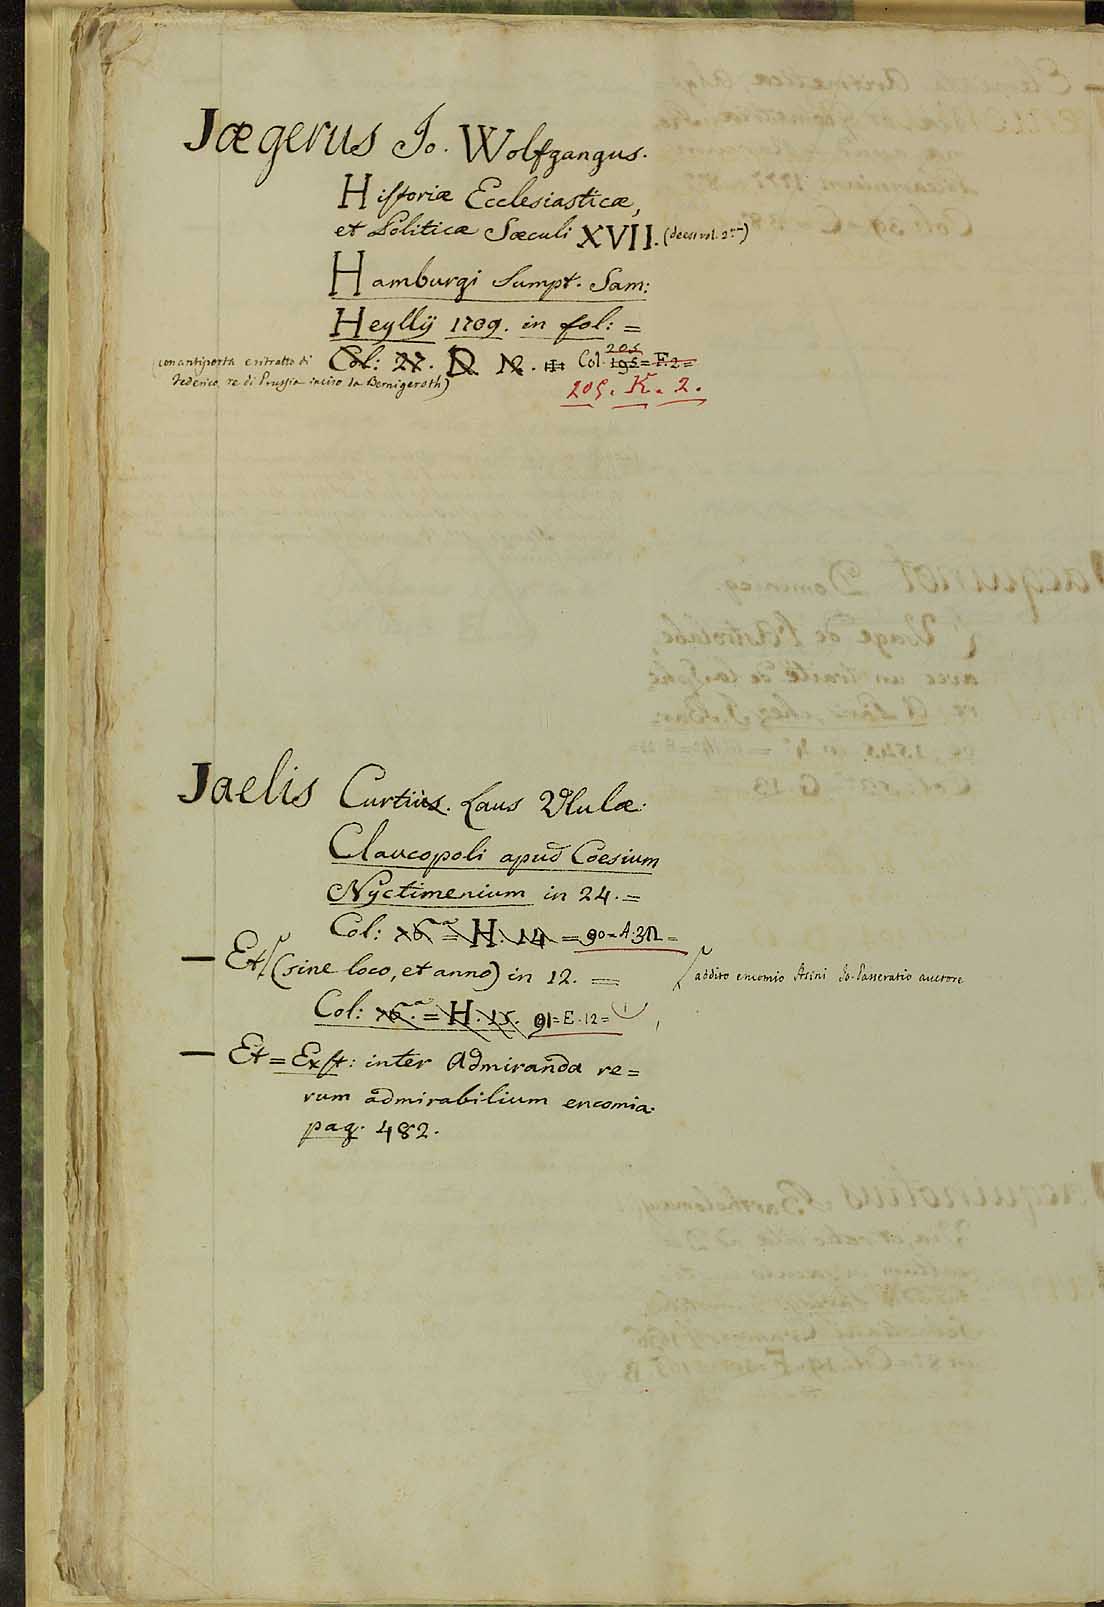 Jægerus Jo. Wolfgangus.
Historiæ Ecclesiasticæ,
et Politicæ Sæculi XVII. (deest vol. 2um)
Hamburgi Sumpt. Sam:
Heyllÿ 1709. in fol: =
Col: 27. D. 12. Col. 195 = F. 2 =
205
(con antiporta e ritratto di
Federico, re di Prussia inciso da Bernigeroth)
205. K. 2.
Jaelis Curtius. Laus Ululæ.
Claucopoli apud Coesium
Nyctimenium in 24. =
Col: 76.a = H. 14 = 90 = A. 32 =
— Et (sine loco, et anno) in 12. =
addito encomio Asini Jo. Passeratio auctore
Col: 76.a = H. 15. 91 = E. 12 =
— Et = Exst: inter Admiranda re=
rum admirabilium encomia.
pag. 482.